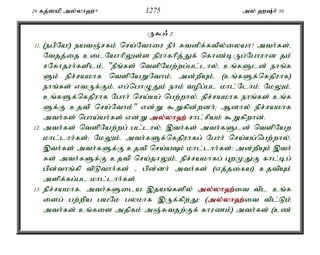 28 கத்ஸமி அல்லாஹு 1275 அல் ஹஷ்ர் 59
ருகூஃ 2
11. (நபியே) நயவஞ்சகம் செய்வோரை நீர் கவனிக்கவில்லையா? அவர்கள்,
வேதத்தை உடையோரிலுள்ள நிராகரித்துக் கொண்டிருப்போரான தம்
சகோதரர்களிடம், "நீங்கள் வெளியேற்றப்பட்டால், உங்களுடன் நாங்க
ளும் நிச்சயமாக வெளியேறுவோம்; அன்றியும், (உங்களுக்கெதிராக)
நாங்கள் எவருக்கும், எப்பொழுதும் நாம் வழிப்பட மாட்டோம்; மேலும்,
உங்களுக்கெதிராக போர் செய்யப் பெற்றால், நிச்சயமாக நாங்கள் உங்க
ளுக்கு உதவி செய்வோம்" என்று கூறுகின்றனர்; ஆனால் நிச்சயமாக
அவர்கள் பொய்யர்கள் என்று அல்லாஹ் சாட்சியம் கூறுகிறான்.
12. அவர்கள் வெளியேற்றப் பட்டால், இவர்கள் அவர்களுடன் வெளியேற
மாட்டார்கள்; மேலும், அவர்களுக்கெதிராகப் போர் செய்யப்பெற்றால்,
இவர்கள் அவர்களுக்கு உதவி செய்யவும் மாட்டார்கள்; அன்றியும் இவர்
கள் அவர்களுக்கு உதவி செய்தாலும், நிச்சயமாகப் புறமுதுகு காட்டிப்
பின்வாங்கி விடுவார்கள் - பின்னர் அவர்கள் (எத்தகைய) உதவியும்
அளிக்கப்பட மாட்டார்கள்.
13. நிச்சயமாக, அவர்களுடைய இதயங்களில் அல்லாஹ்வை விட உங்க
ளைப் பற்றிய பயமே பலமாக இருக்கிறது; (அல்லாஹ்வை விட்டும்
அவர்கள் உங்களை அதிகம் அஞ்சுவதற்குக் காரணம்) அவர்கள் (உண்